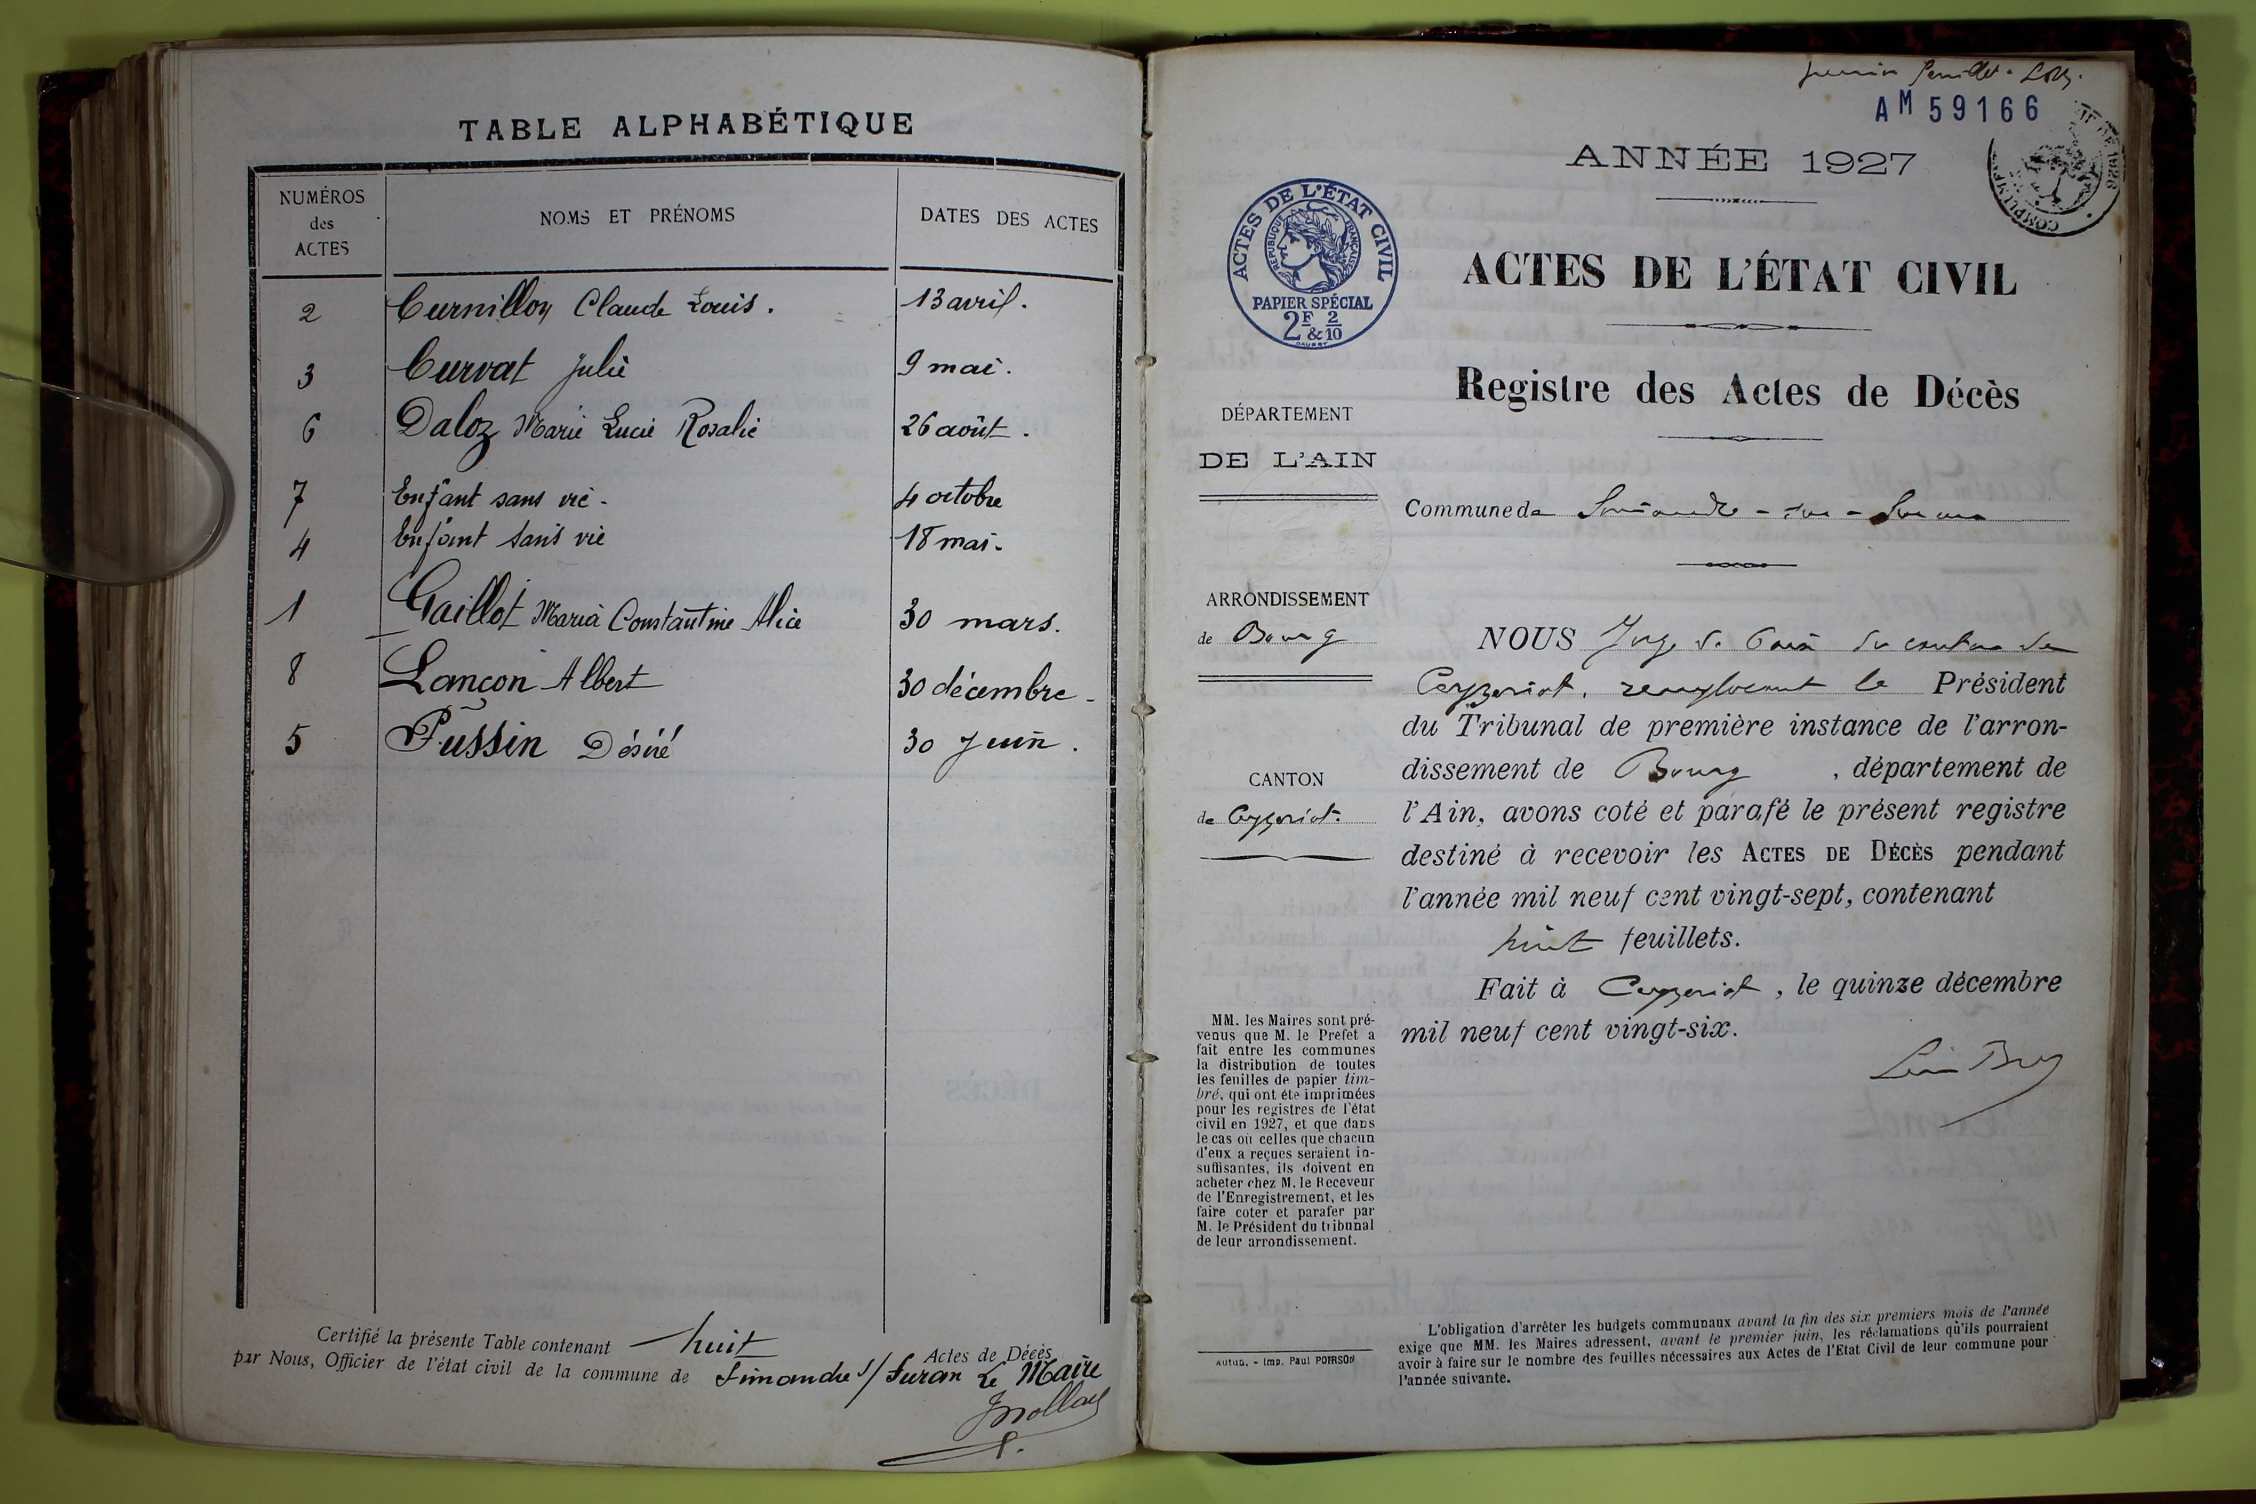 TABLE ALPHABÉTIQUE
NUMÉROS des ACTES NOMS ET PRÉNOMS DATES DES ACTES
2 Curnillon Claude Louis. 13 avril.
3 Curvat Julie 9 mai.
6 Daloz Marie Lucie Rosalie 26 août.
7 Enfant sans vie - 4 octobre
4 Enfant sans vie 18 mai.
1 Gaillot Maria Constantine Alice 30 mars.
8 Lançon Albert 30 décembre -
5 Pussin Désiré 30 Juin.
Certifié la présente Table contenant huit Actes de Décès
par Nous, Officier de l'état civil de la commune de Simandre s/ Suran Le Maire
AM 59166
ANNÉE 1927
ACTES DE L'ÉTAT CIVIL
RÉPUBLIQUE FRANÇAISE
PAPIER SPÉCIAL
2F & 2/10
ACTES DE L'ÉTAT CIVIL
Registre des Actes de Décès
DÉPARTEMENT
DE L'AIN
Commune de Simandre-sur-Suran
ARRONDISSEMENT
de Bourg
CANTON
de Ceyzeriat.
NOUS Juge de Paix du canton de
Ceyzeriat, remplaçant le Président
du Tribunal de première instance de l'arron-
dissement de Bourg, département de
l'Ain, avons coté et parafé le présent registre
destiné à recevoir les ACTES DE DÉCÈS pendant
l'année mil neuf cent vingt-sept, contenant
huit feuillets.
Fait à Ceyzeriat, le quinze décembre
mil neuf cent vingt-six.
MM. les Maires sont pré-
venus que M. le Prefet a
fait entre les communes
la distribution de toutes
les feuilles de papier tim-
bré, qui ont été imprimées
pour les registres de l'état
civil en 1927, et que dans
le cas où celles que chacun
d'eux a reçues seraient in-
suffisantes, ils doivent en
acheter chez M. le Receveur
de l'Enregistrement, et les
faire coter et parafer par
M. le Président du tribunal
de leur arrondissement.
Autun. - Imp. Paul POIRSON
L'obligation d'arrêter les budgets communaux avant la fin des six premiers mois de l'année
exige que MM. les Maires adressent, avant le premier juin, les réclamations qu'ils pourraient
avoir à faire sur le nombre des feuilles nécessaires aux Actes de l'Etat Civil de leur commune pour
l'année suivante.